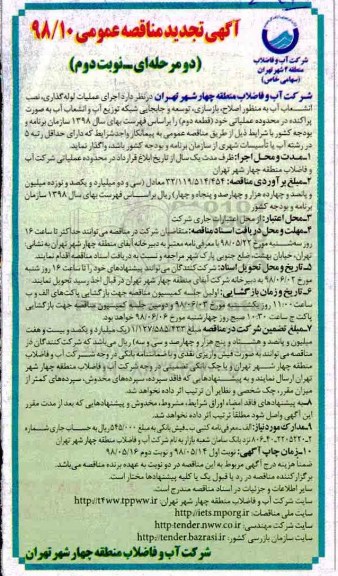 آگهی تجدید مناقصه عمومی ۹۸/۱۰
(دو مرحله‌ای _ نوبت دوم)
شرکت آب و فاضلاب
منطقه ۴ شهر تهران
(سهامی خاص)
شرکت آب و فاضلاب منطقه چهار شهر تهران در نظر دارد اجرای عملیات لوله‌گذاری، نصب
انشعاب آب به منظور اصلاح، بازسازی، توسعه و جابجایی شبکه توزیع آب و انشعاب آب به صورت
پراکنده در محدوده عملیاتی خود (قطعه دوم) را براساس فهرست بهای سال ۱۳۹۸ سازمان برنامه و
بودجه کشور با شرایط ذیل از طریق مناقصه عمومی به پیمانکار واجد شرایط که دارای حداقل رتبه ۵
در رشته آب یا تأسیسات شهری از سازمان برنامه و بودجه کشور باشد، واگذار نماید.
۱_مدت و محل اجرا: ظرف مدت یک سال از تاریخ ابلاغ قرارداد در محدوده عملیاتی شرکت آب
و فاضلاب منطقه چهار شهر تهران
۲_مبلغ برآوردی مناقصه: ۳۲/۱۱۹/۵۱۴/۴۵۴ معادل (سی و دو میلیارد و یکصد و نوزده میلیون
و پانصد و چهارده هزار و چهارصد و پنجاه و چهار) ریال براساس فهرست بهای سال ۱۳۹۸ سازمان
برنامه و بودجه کشور
۳_محل اعتبار: از محل اعتبارات جاری شرکت
۴_مهلت و محل دریافت اسناد مناقصه: متقاضیان شرکت در مناقصه می‌توانند حداکثر تا ساعت ۱۶
روز سه‌شنبه مورخ ۹۸/۰۵/۲۲ با معرفی‌نامه معتبر به دبیرخانه آبفای منطقه چهار شهر تهران به نشانی:
تهران، خیابان بهشت، ضلع جنوبی پارک شهر مراجعه و نسبت به دریافت اسناد مناقصه اقدام نمایند.
۵_تاریخ و محل تحویل اسناد: شرکت‌کنندگان می‌توانند پیشنهادهای خود را تا ساعت ۱۶ روز شنبه
مورخ ۹۸/۰۶/۰۲ به دبیرخانه شرکت آبفای منطقه چهار شهر تهران در قبال اخذ رسید تحویل نمایند.
۶_تاریخ و زمان بازگشایی: اولین جلسه کمیسیون مناقصه جهت بازگشایی پاکت‌های الف و ب
ساعت ۱۱:۰۰ روز یکشنبه مورخ ۹۸/۰۶/۰۳ و دومین جلسه کمیسیون مناقصه جهت بازگشایی
پاکت ج ساعت ۱۰:۳۰ صبح روز چهارشنبه مورخ ۹۸/۰۶/۰۶ خواهد بود.
۷_مبلغ تضمین شرکت در مناقصه مبلغ ۱/۱۲۷/۵۸۵/۴۳۳ (یک میلیارد و یکصد و بیست و هفت
میلیون و پانصد و هشتاد و پنج هزار و چهارصد و سی و سه) ریال می‌باشد که شرکت‌کنندگان در
مناقصه می‌توانند به صورت فیش واریزی نقدی و یا ضمانتنامه بانکی در وجه شرکت آب و فاضلاب
منطقه چهار شهر تهران و یا چک بانکی تضمینی در وجه شرکت آب و فاضلاب منطقه چهار شهر
تهران ارسال نمایند و به پیشنهادهایی که فاقد سپرده، سپرده‌های مخدوش، سپرده‌های کمتر از
میزان مقرر، چک شخصی و نظایر آن ترتیب اثر داده نخواهد شد.
۸_به پیشنهادهای فاقد امضاء اوراق شرایط، مشروط، مخدوش و پیشنهادهایی که بعد از مدت مقرر
این آگهی واصل شود مطلقا ترتیب اثر داده نخواهد شد.
۹_مدارک مورد نیاز: الف_معرفی‌نامه کتبی ب_فیش بانکی به مبلغ ۵۴۵/۰۰۰ ریال به حساب جاری شماره
نزد بانک سامان شعبه بازار به نام شرکت آب و فاضلاب منطقه چهار شهر تهران
۱۰_زمان چاپ آگهی: نوبت اول ۹۸/۰۵/۱۴ و نوبت دوم ۹۸/۰۵/۱۶
ضمنا هزینه درج آگهی مربوط به این مناقصه در دو نوبت به عهده برنده مناقصه می‌باشد.
برگزارکننده مناقصه در رد یا قبول یک یا کلیه پیشنهادها مختار است.
سایر اطلاعات و جزئیات در اسناد مناقصه مندرج است.
سایت شرکت آب و فاضلاب منطقه چهار شهر تهران: http://t4ww.tppww.ir
سایت ملی مناقصات: http://iets.mporg.ir
سایت شرکت مهندسی: http-tender.nww.co.ir
سایت سازمان بازرسی کشور: http://tender.bazrasi.ir
شرکت آب و فاضلاب منطقه چهار شهر تهران